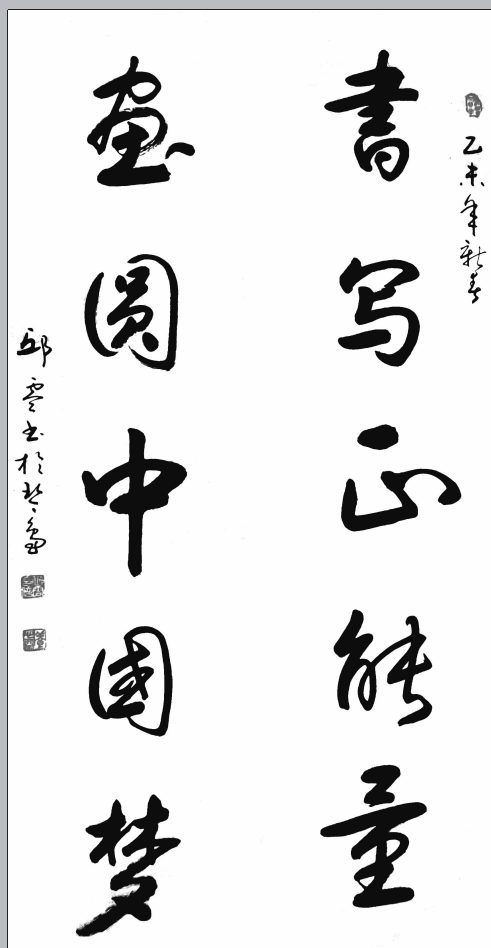 乙未年新春
書写正能量
畫圆中國梦
邱书於琴岛